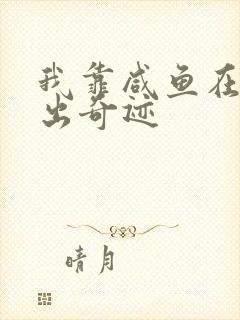 我靠咸鱼在
出奇迹
晴月